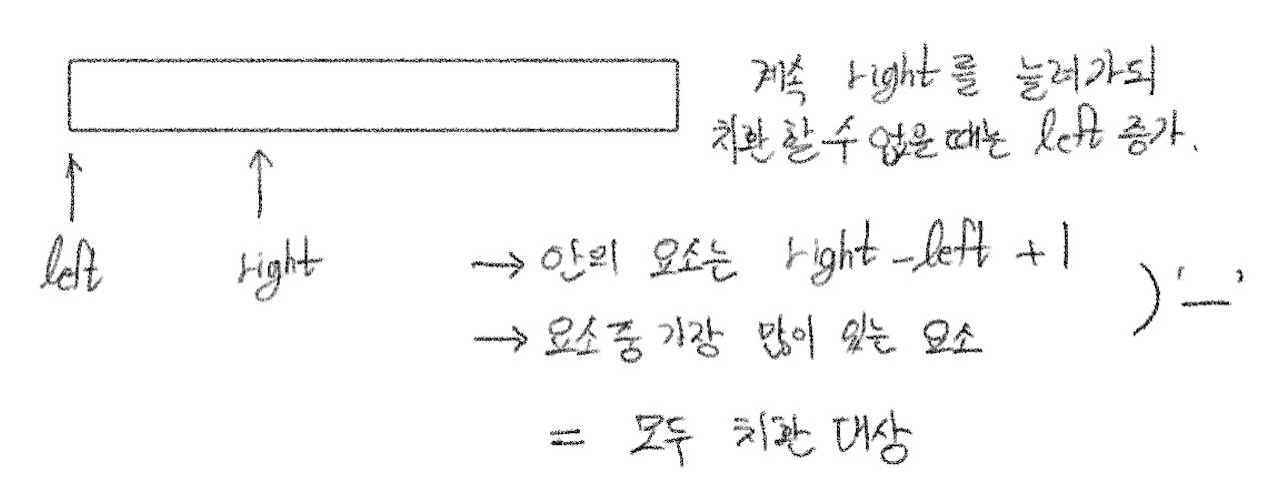 계속 right를 늘려가되
치환 할 수 없을 때는 left 증가.
left
right
→ 안의 요소는 right - left + 1
→ 요소 중 가장 많이 있는 요소
) '—'
= 모두 치환 대상